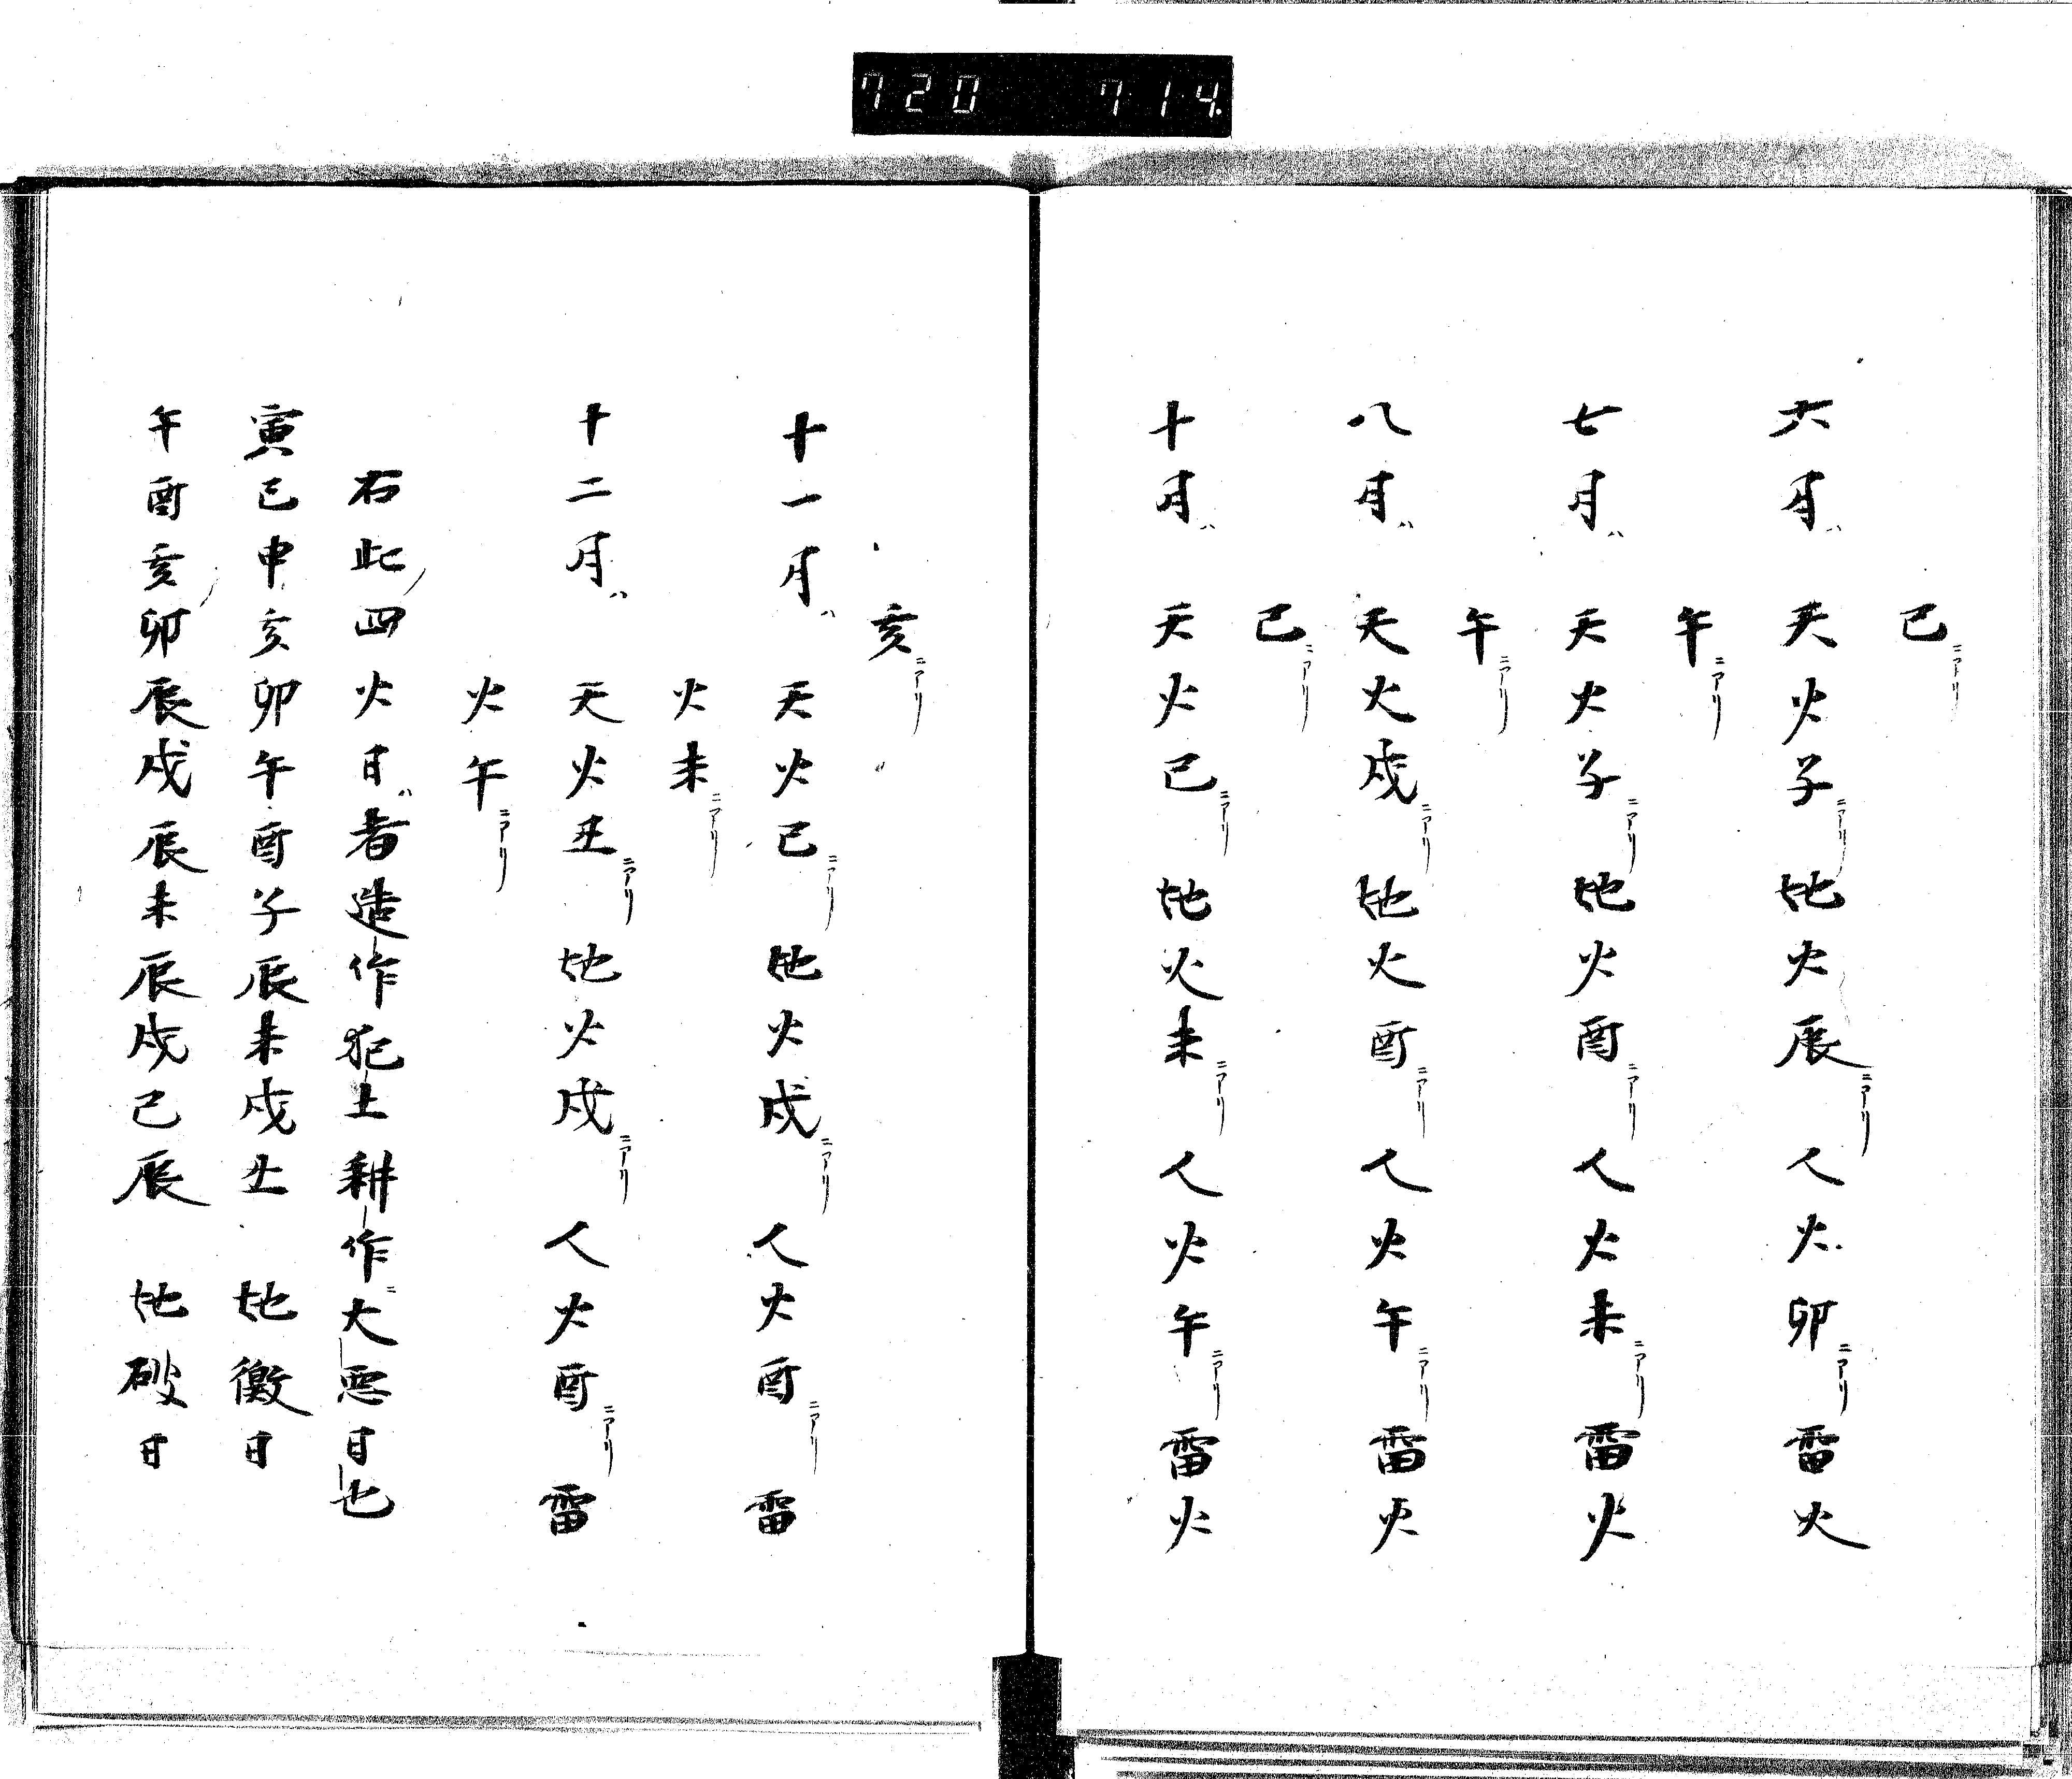 720 714
巳ニアリ
六月ハ 天火子ニアリ 地火辰ニアリ 人火卯ニアリ 雷火
午ニアリ
七月ハ 天火子ニアリ 地火酉ニアリ 人火未ニアリ 雷火
午ニアリ
八月ハ 天火戌ニアリ 地火酉ニアリ 人火午ニアリ 雷火
巳ニアリ
十月ハ 天火巳ニアリ 地火未ニアリ 人火午ニアリ 雷火
亥ニアリ
十一月ハ 天火巳ニアリ 地火戌ニアリ 人火酉ニアリ 雷
火未ニアリ
十二月ハ 天火丑ニアリ 地火戌ニアリ 人火酉ニアリ 雷
火午ニアリ
右此ノ四火日ハ者造作犯土耕作ニ大悪日也
寅巳申亥卯午酉子辰未戌丑 地徼日
午酉亥卯辰戌辰未辰戌巳辰 地破日